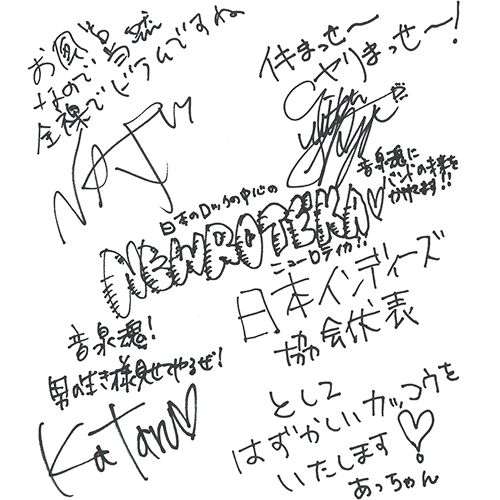 お風呂
なので当然
全裸でドラムですね
NABO
行きまっせ〜
ヤリまっせ〜!
音泉魂に
バンドの未来を
かけてます!!
日本のロックの中心の
NEWROTE'KA
ニューロティカ!!
日本インディーズ
協会代表
として
はずかしいカッコウを
いたします!
あっちゃん
音泉魂!
男の生き様見せてやるぜ!
KaTaru